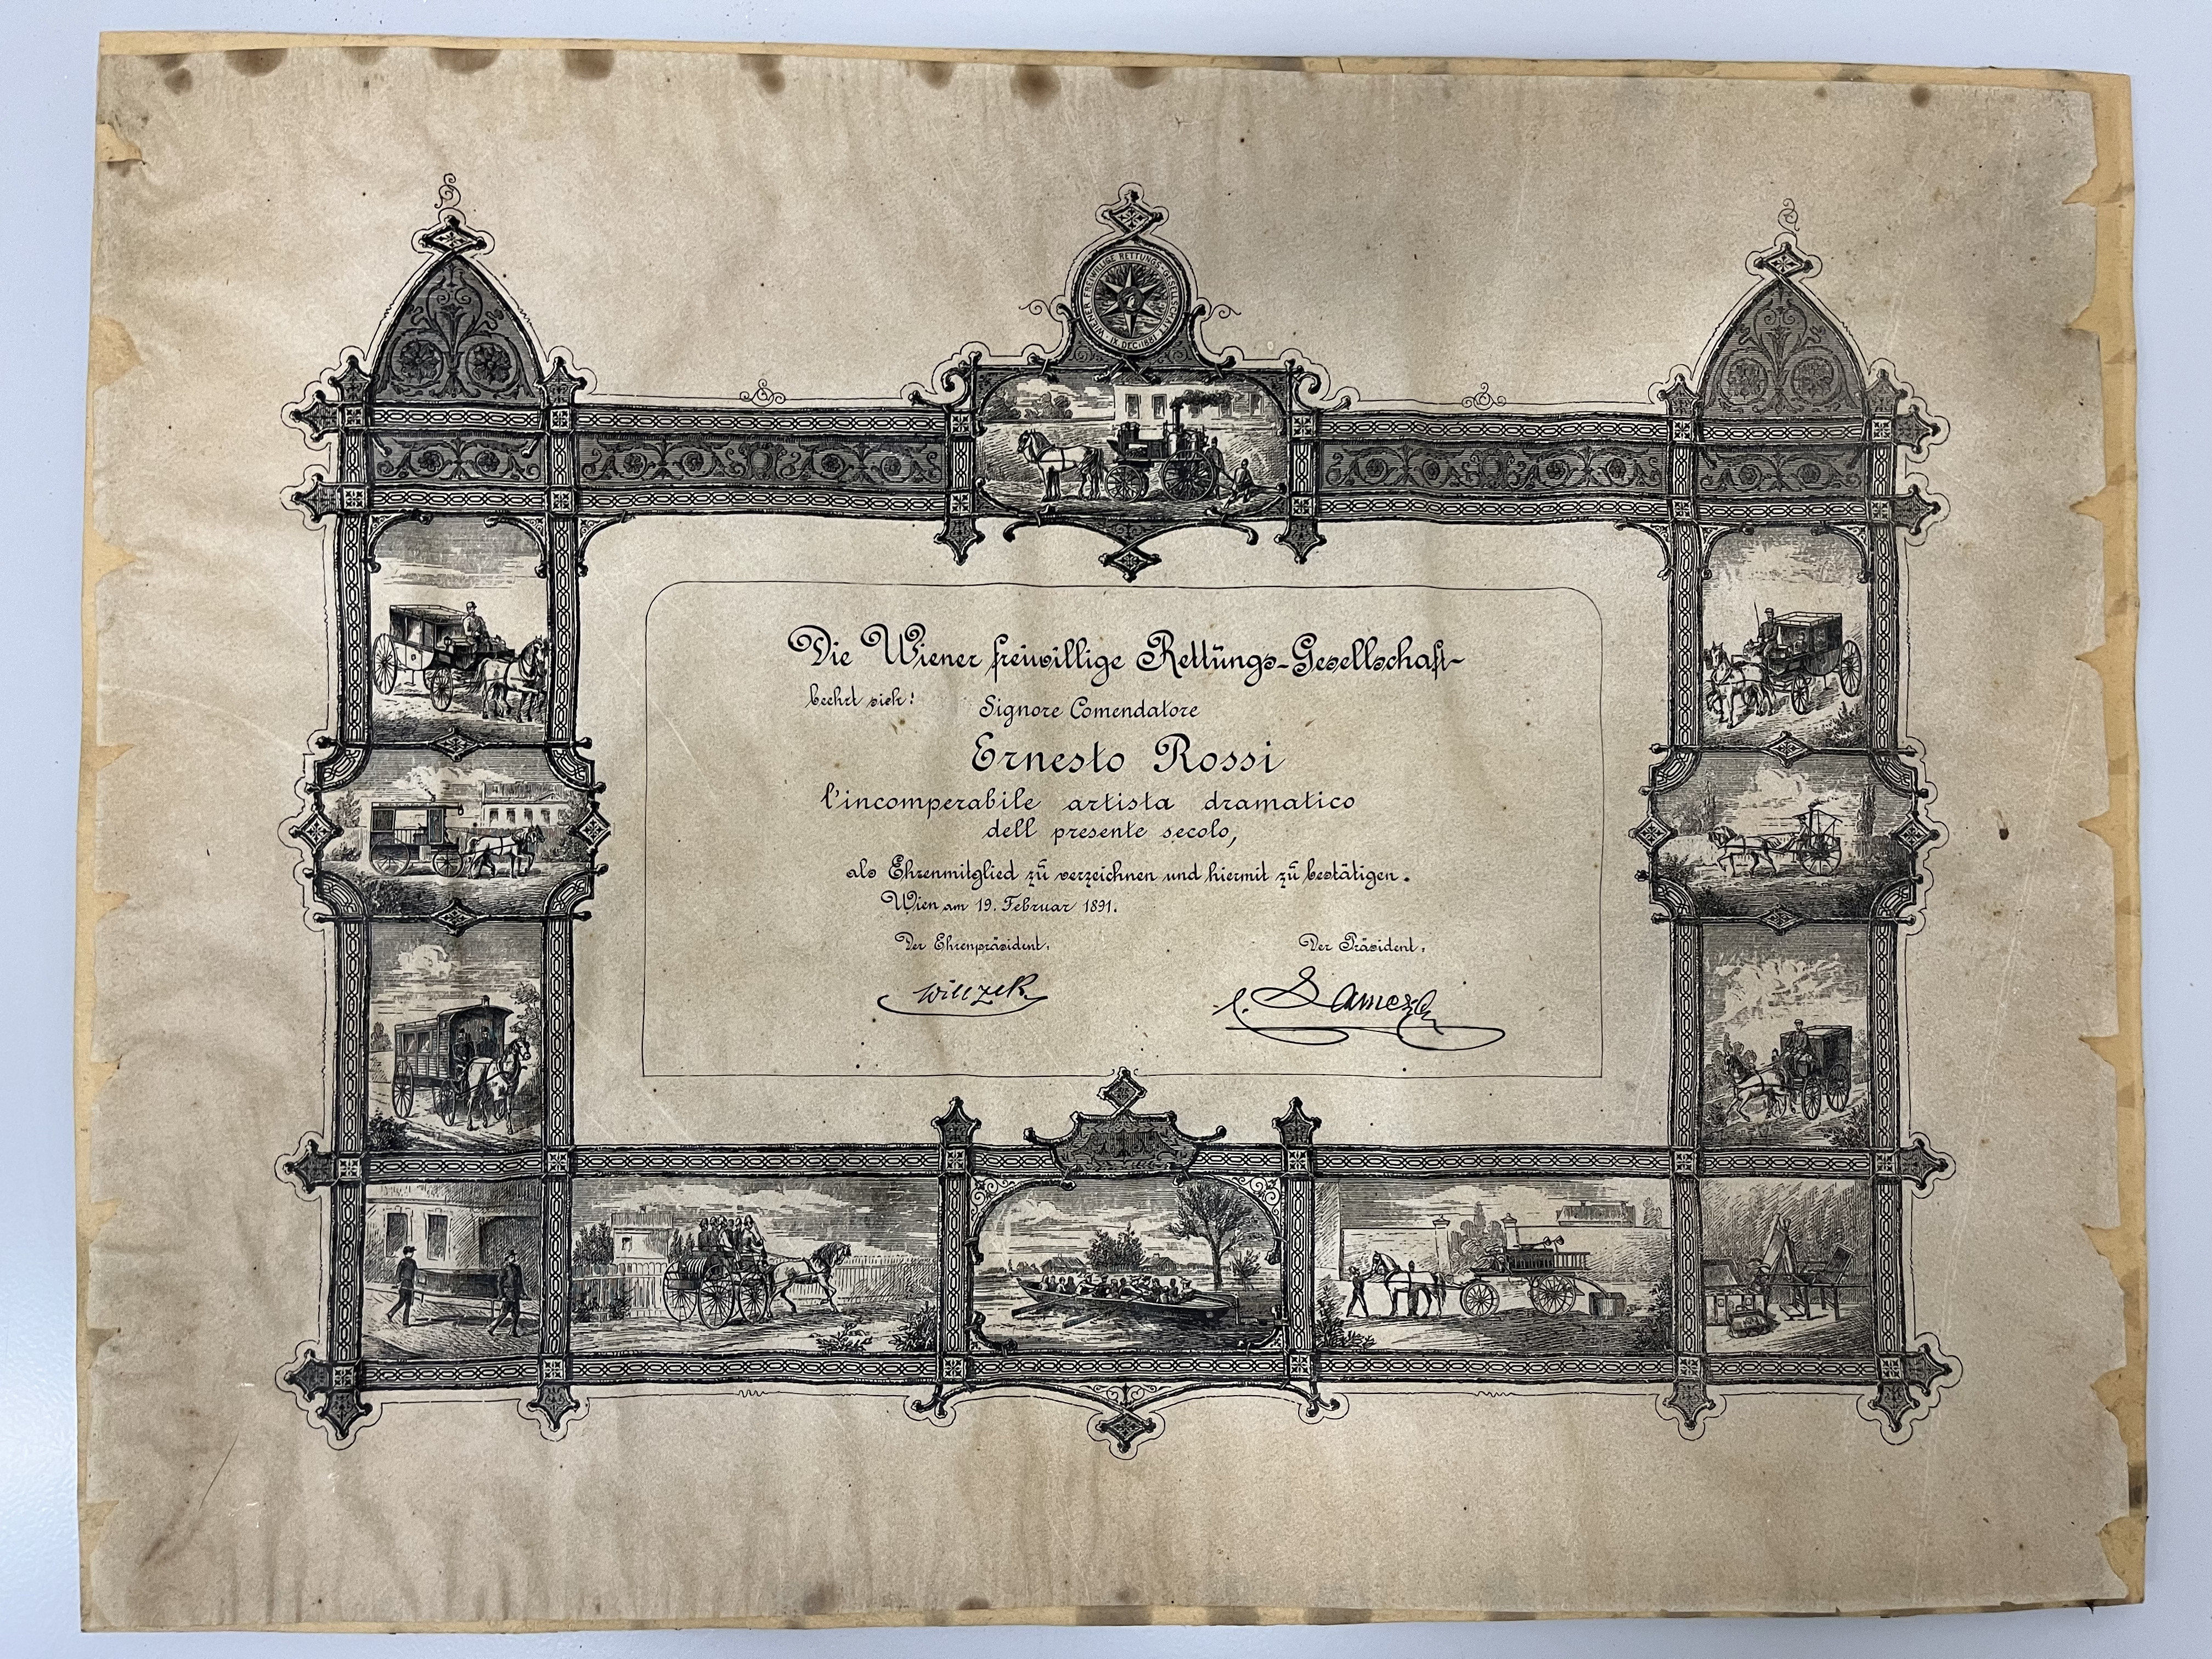 WIENER FREIWILLIGE RETTUNGS-GESELLSCHAFT
IX. DEC. 1881
Die Wiener freiwillige Rettüngs-Gesellschaft
beehrt sich:
Signore Comendatore
Ernesto Rossi
l'incomperabile artista dramatico
dell presente secolo,
als Ehrenmitglied zū verzeichnen und hiermit zū bestätigen.
Wien am 19. Februar 1891.
Der Ehrenpräsident:
Der Präsident:
Wilczek